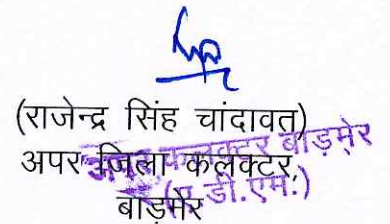 (राजेन्द्र सिंह चांदावत)
अपर जिला कलक्टर,
बाड़मेर
कलक्टर बाड़मेर
(ए.डी.एम.)